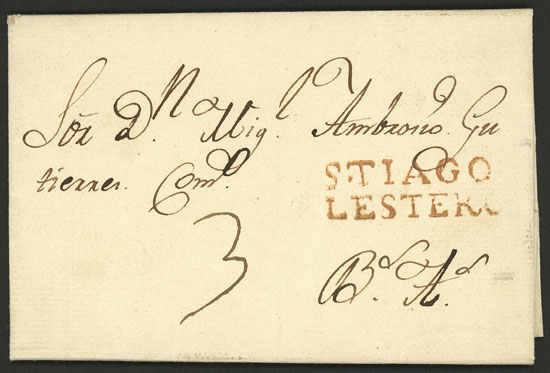 Sor. Dn. Migl. Ambrosio Gu
tierres. Comdo.
S.TIAGO
LESTERO
3
Bs. As.